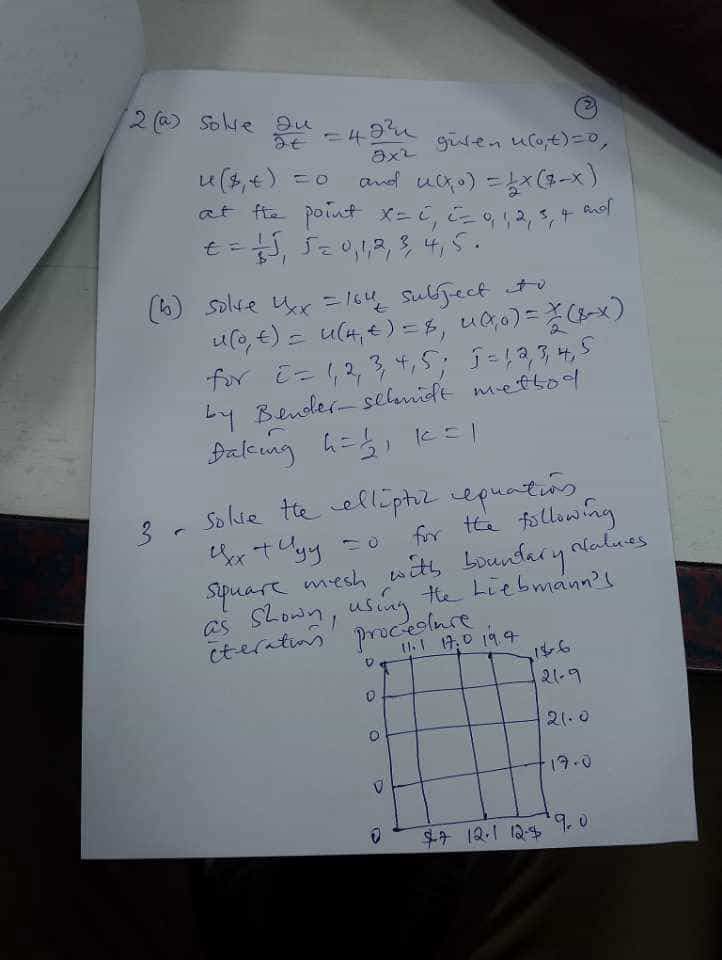 ②
2 (a) Solve ∂u/∂t = 4 ∂²u/∂x² given u(0,t)=0,
u(8,t) = 0 and u(x,0) = 1/2 x(8-x)
at the point x = i, i = 0,1,2,3,4 and
t = 1/8 j, j = 0,1,2,3,4,5.
(b) Solve u_xx = 16u_t subject to
u(0,t) = u(4,t) = 8, u(x,0) = x/2 (8-x)
for i = 1,2,3,4,5; j = 1,2,3,4,5
by Bender-schmidt method
taking h = 1/2, k = 1
3 - Solve the elliptic equations
u_xx + u_yy = 0 for the following
square mesh with boundary values
as shown, using the Liebmann's
iteration procedure.
0 11.1 17.0 19.7 18.6
0 21.9
0 21.0
0 17.0
0 8.7 12.1 12.8 9.0